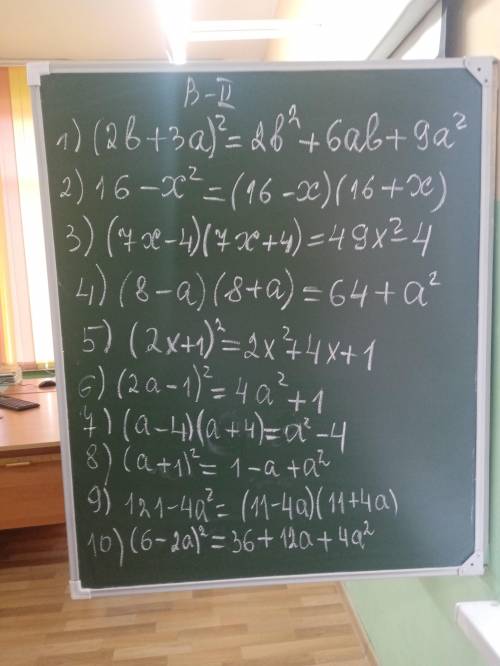 В-II
1) (2b+3a)²=2b²+6ab+9a²
2) 16-x²=(16-x)(16+x)
3) (7x-4)(7x+4)=49x²-4
4) (8-a)(8+a)=64+a²
5) (2x+1)²=2x²+4x+1
6) (2a-1)²=4a²+1
7) (a-4)(a+4)=a²-4
8) (a+1)²=1-a+a²
9) 121-4a²=(11-4a)(11+4a)
10) (6-2a)²=36+12a+4a²